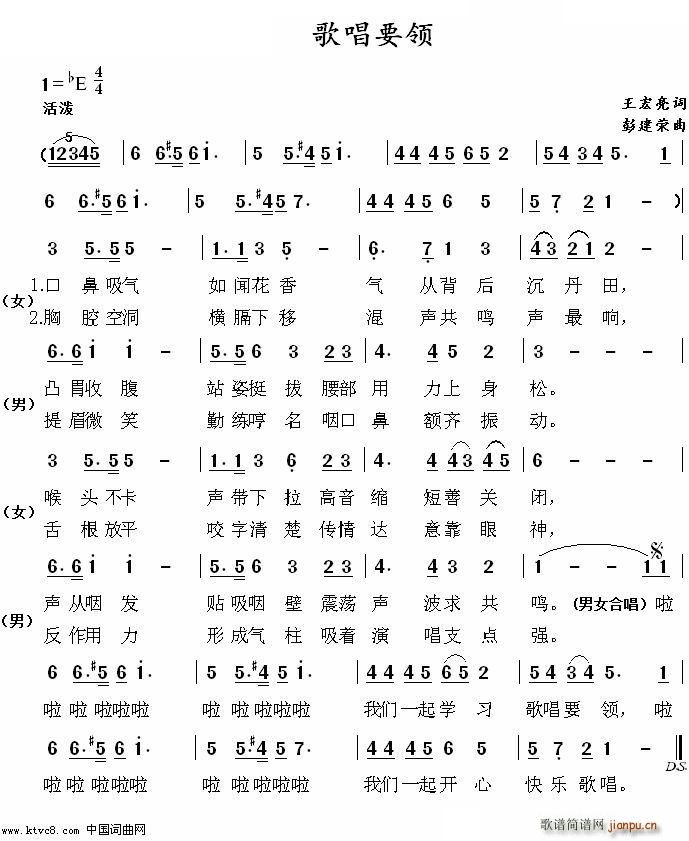 歌唱要领
1=♭E 4/4
活泼
王宏亮词
彭建荣曲
5
(12345 | 6 6·#5 6 1· | 5 5·#4 5 1· | 4 4 4 5 6 5 2 | 5 4 3 4 5· 1 |
6 6·#5 6 1· | 5 5·#4 5 7· | 4 4 4 5 6 5 | 5 7 2 1 - ) |
3 5·5 5 - | 1·1 3 5 - | 6· 7 1 3 | 4 3 2 1 - |
1.口 鼻 吸气 如 闻花 香 气 从背 后 沉 丹 田,
(女)
2.胸 腔 空洞 横 膈下 移 混 声共 鸣 声 最 响,
6·6 1 1 - | 5·5 6 3 2 3 | 4· 4 5 2 | 3 - - - |
凸 胃收 腹 站 姿挺 拔 腰部 用 力上 身 松。
(男)
提 眉微 笑 勤 练哼 名 咽口 鼻 额齐 振 动。
3 5·5 5 - | 1·1 3 6 2 3 | 4· 4 4 3 4 5 | 6 - - - |
喉 头 不卡 声 带下 拉 高音 缩 短善 关 闭,
(女)
舌 根 放平 咬 字清 楚 传情 达 意靠 眼 神,
6·6 1 1 - | 5·5 6 3 2 3 | 4· 3 2 3 | 1 - - 1 1 |
声 从咽 发 贴 吸咽 壁 震荡 声 波求 共 鸣。(男女合唱) 啦
(男)
反 作用 力 形 成气 柱 吸着 演 唱支 点 强。
6 6·#5 6 1· | 5 5·#4 5 1· | 4 4 4 5 6 5 2 | 5 4 3 4 5· 1 |
啦 啦 啦啦啦 啦 啦 啦啦啦 我们一起学 习 歌唱要 领, 啦
6 6·#5 6 1· | 5 5·#4 5 7· | 4 4 4 5 6 5 | 5 7 2 1 - ‖
D.S.
啦 啦 啦啦啦 啦 啦 啦啦啦 我们一起开 心 快 乐 歌唱。
www.ktvc8.com 中国词曲网
歌谱简谱网 jianpu.cn